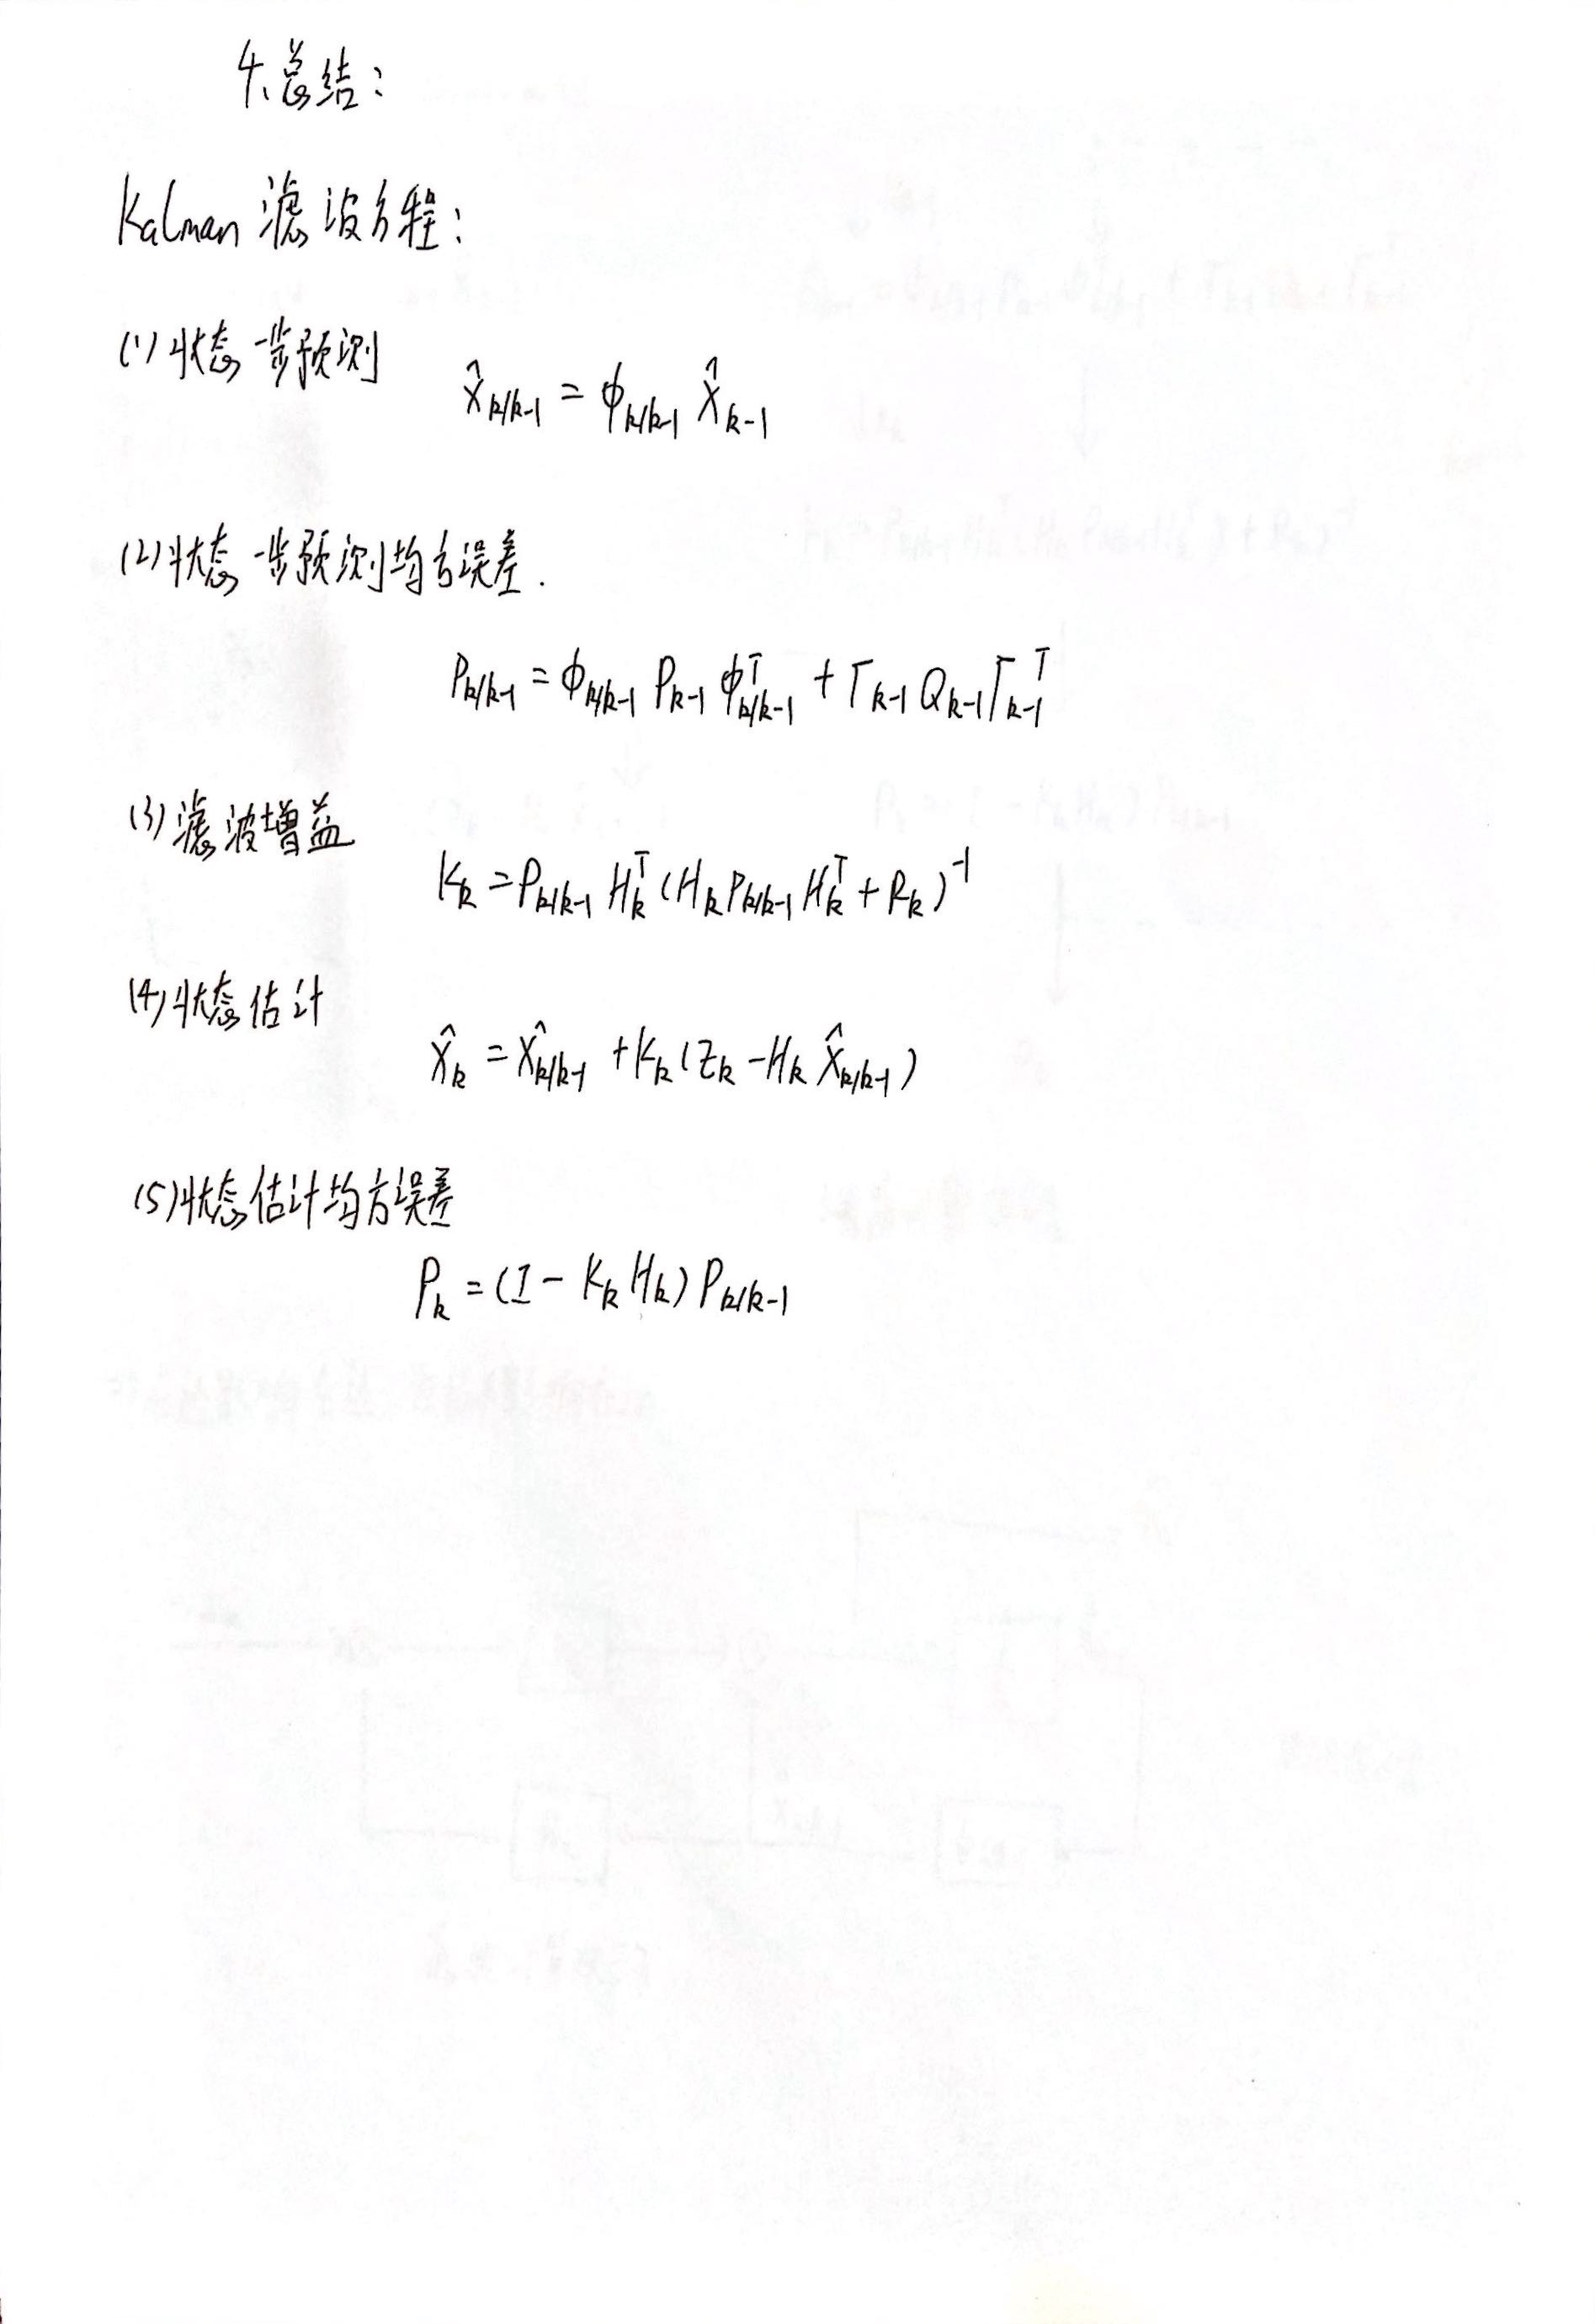 4、总结：
Kalman 滤波方程：
(1) 状态一步预测
X̂_{k/k-1} = ϕ_{k/k-1} X̂_{k-1}
(2) 状态一步预测均方误差.
P_{k/k-1} = ϕ_{k/k-1} P_{k-1} ϕ^T_{k/k-1} + Γ_{k-1} Q_{k-1} Γ_{k-1}^T
(3) 滤波增益
K_k = P_{k/k-1} H_k^T (H_k P_{k/k-1} H_k^T + R_k)^{-1}
(4) 状态估计
X̂_k = X̂_{k/k-1} + K_k (Z_k - H_k X̂_{k/k-1})
(5) 状态估计均方误差
P_k = (I - K_k H_k) P_{k/k-1}